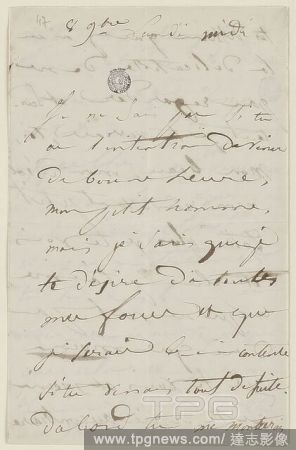 8 9bre lundi midi
Je ne sais pas si tu
as l'intention de venir
de bonne heure,
mon petit homme,
mais je sais que je
te désire de toutes
mes forces et que
je serais bien contente
si tu venais tout de suite.
D'abord tu me
TPG
www.tpgnews.com/達志影像